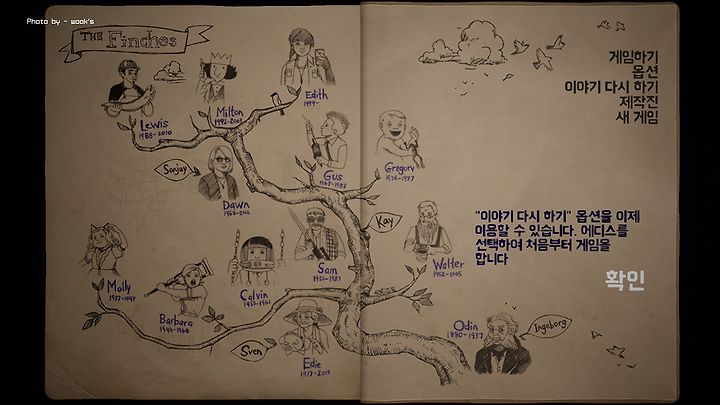 Photo by - wook's
THE Finches
게임하기
옵션
이야기 다시 하기
제작진
새 게임
Lewis
1988-2010
Milton
1992-2003
Edith
1999-
Sanjay
Dawn
1968-2016
Gus
1969-1982
Gregory
1976-1977
Kay
Molly
1937-1947
Barbara
1944-1960
Calvin
1950-1961
Sam
1950-1983
Walter
1952-2005
Sven
Edie
1917-2010
Odin
1880-1937
Ingeborg
"이야기 다시 하기" 옵션을 이제
이용할 수 있습니다. 에디스를
선택하여 처음부터 게임을
합니다
확인